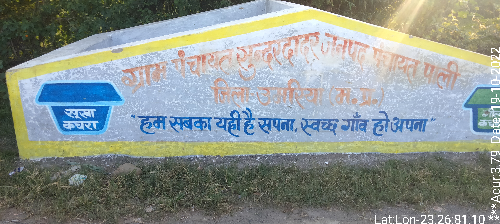 ग्राम पंचायत सुन्दरदादर जनपद पंचायत पाली
जिला उमरिया (म.प्र.)
सूखा
कचरा
"हम सबका यही है सपना, स्वच्छ गाँव हो अपना"
Lat Lon-23.26:81.10
**Accur:3.79 Date:19-10-2022